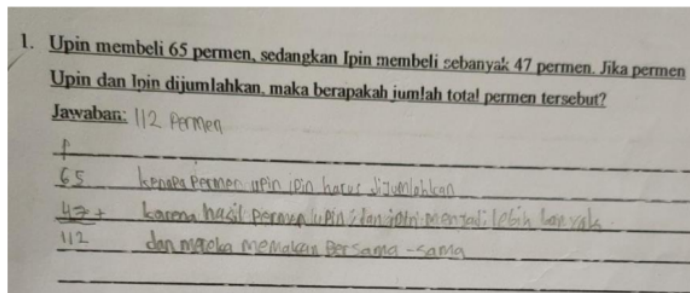 1. Upin membeli 65 permen, sedangkan Ipin membeli sebanyak 47 permen. Jika permen
Upin dan Ipin dijumlahkan, maka berapakah jumlah total permen tersebut?
Jawaban: 112 Permen
1
65 kenapa Permen upin ipin harus dijumlahkan
47 + karena hasil permen upin dan ipin menjadi lebih banyak
112 dan mereka memakan Bersama-sama